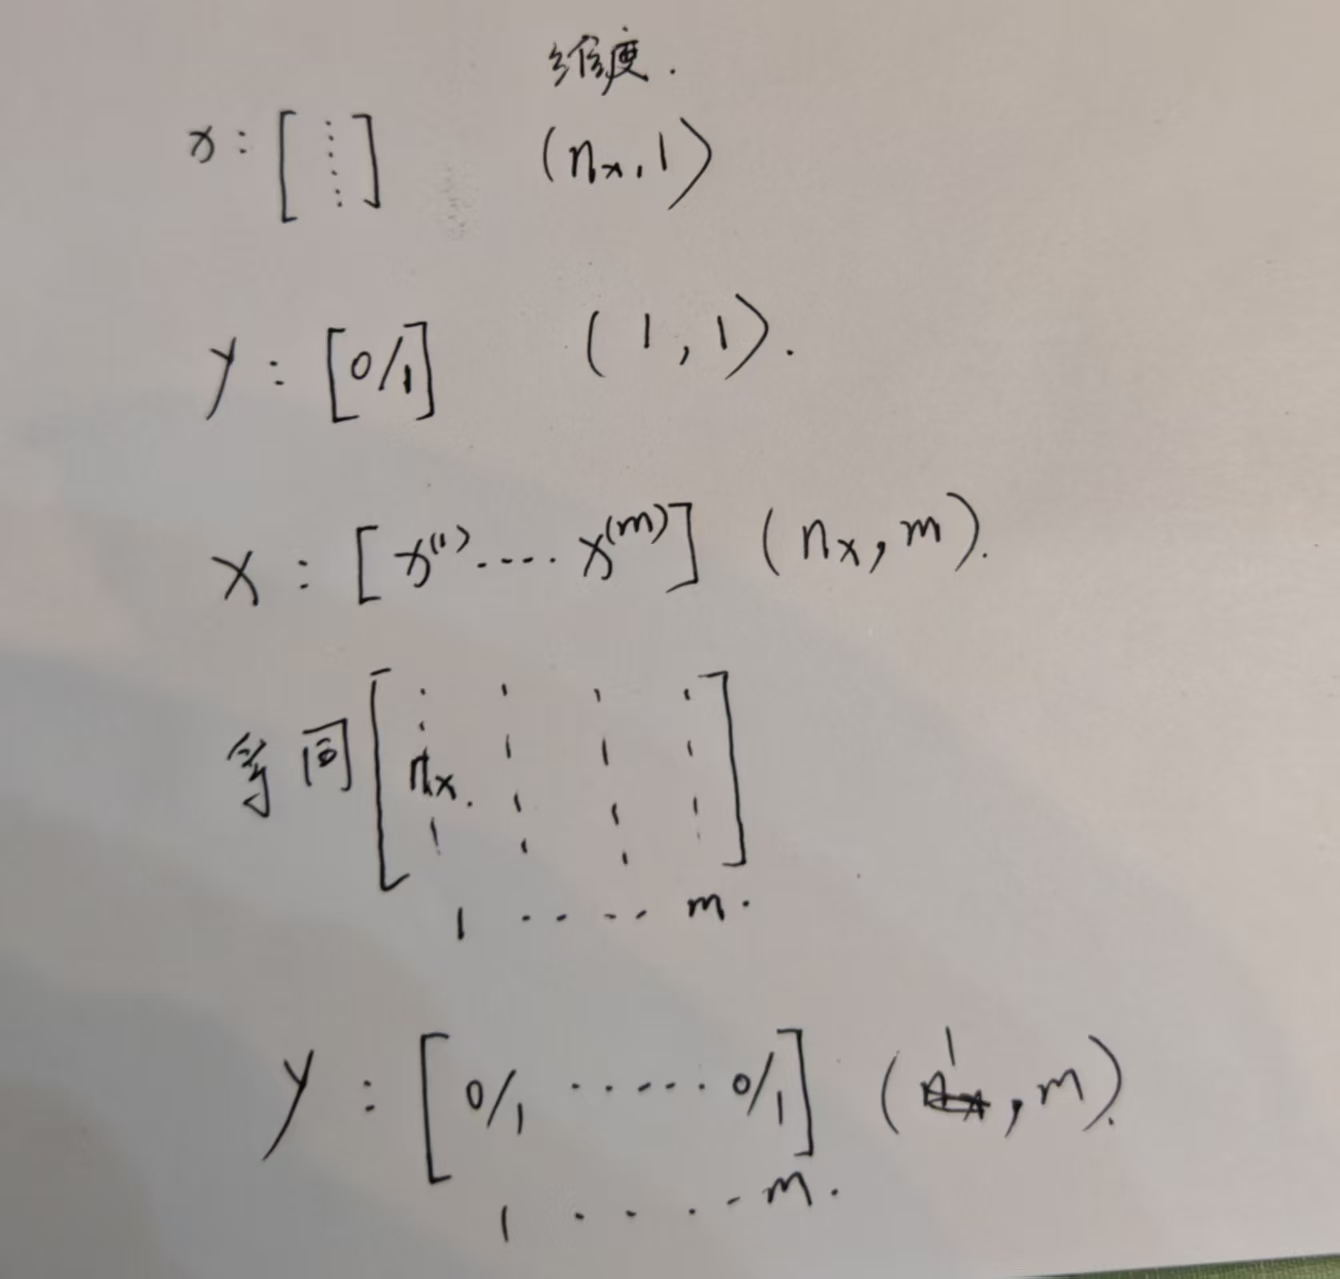 维度.
x: [ ⋮ ] (nx, 1)
y: [0/1] (1, 1).
X: [x(1) .... x(m)] (nx, m).
等同 [ nx. ]
1 .... m.
Y: [0/1 ..... 0/1] (1, m).
1 .... m.